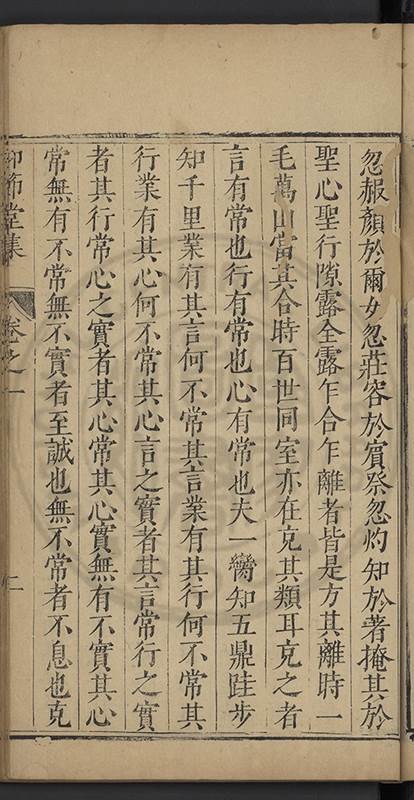 忽赧顏於爾女忽莊容於賓祭忽灼知於著掩其於
聖心聖行隙露全露乍合乍離者皆是方其離時一
毛萬山當其合時百世同室亦在克其類耳克之者
言有常也行有常也心有常也夫一臠知五鼎跬步
知千里業有其言何不常其言業有其行何不常其
行業有其心何不常其心言之實者其言常行之實
者其行常心之實者其心常其心實無有不實其心
常無有不常無不實者至誠也無不常者不息也克
仰節堂集 卷之一 二